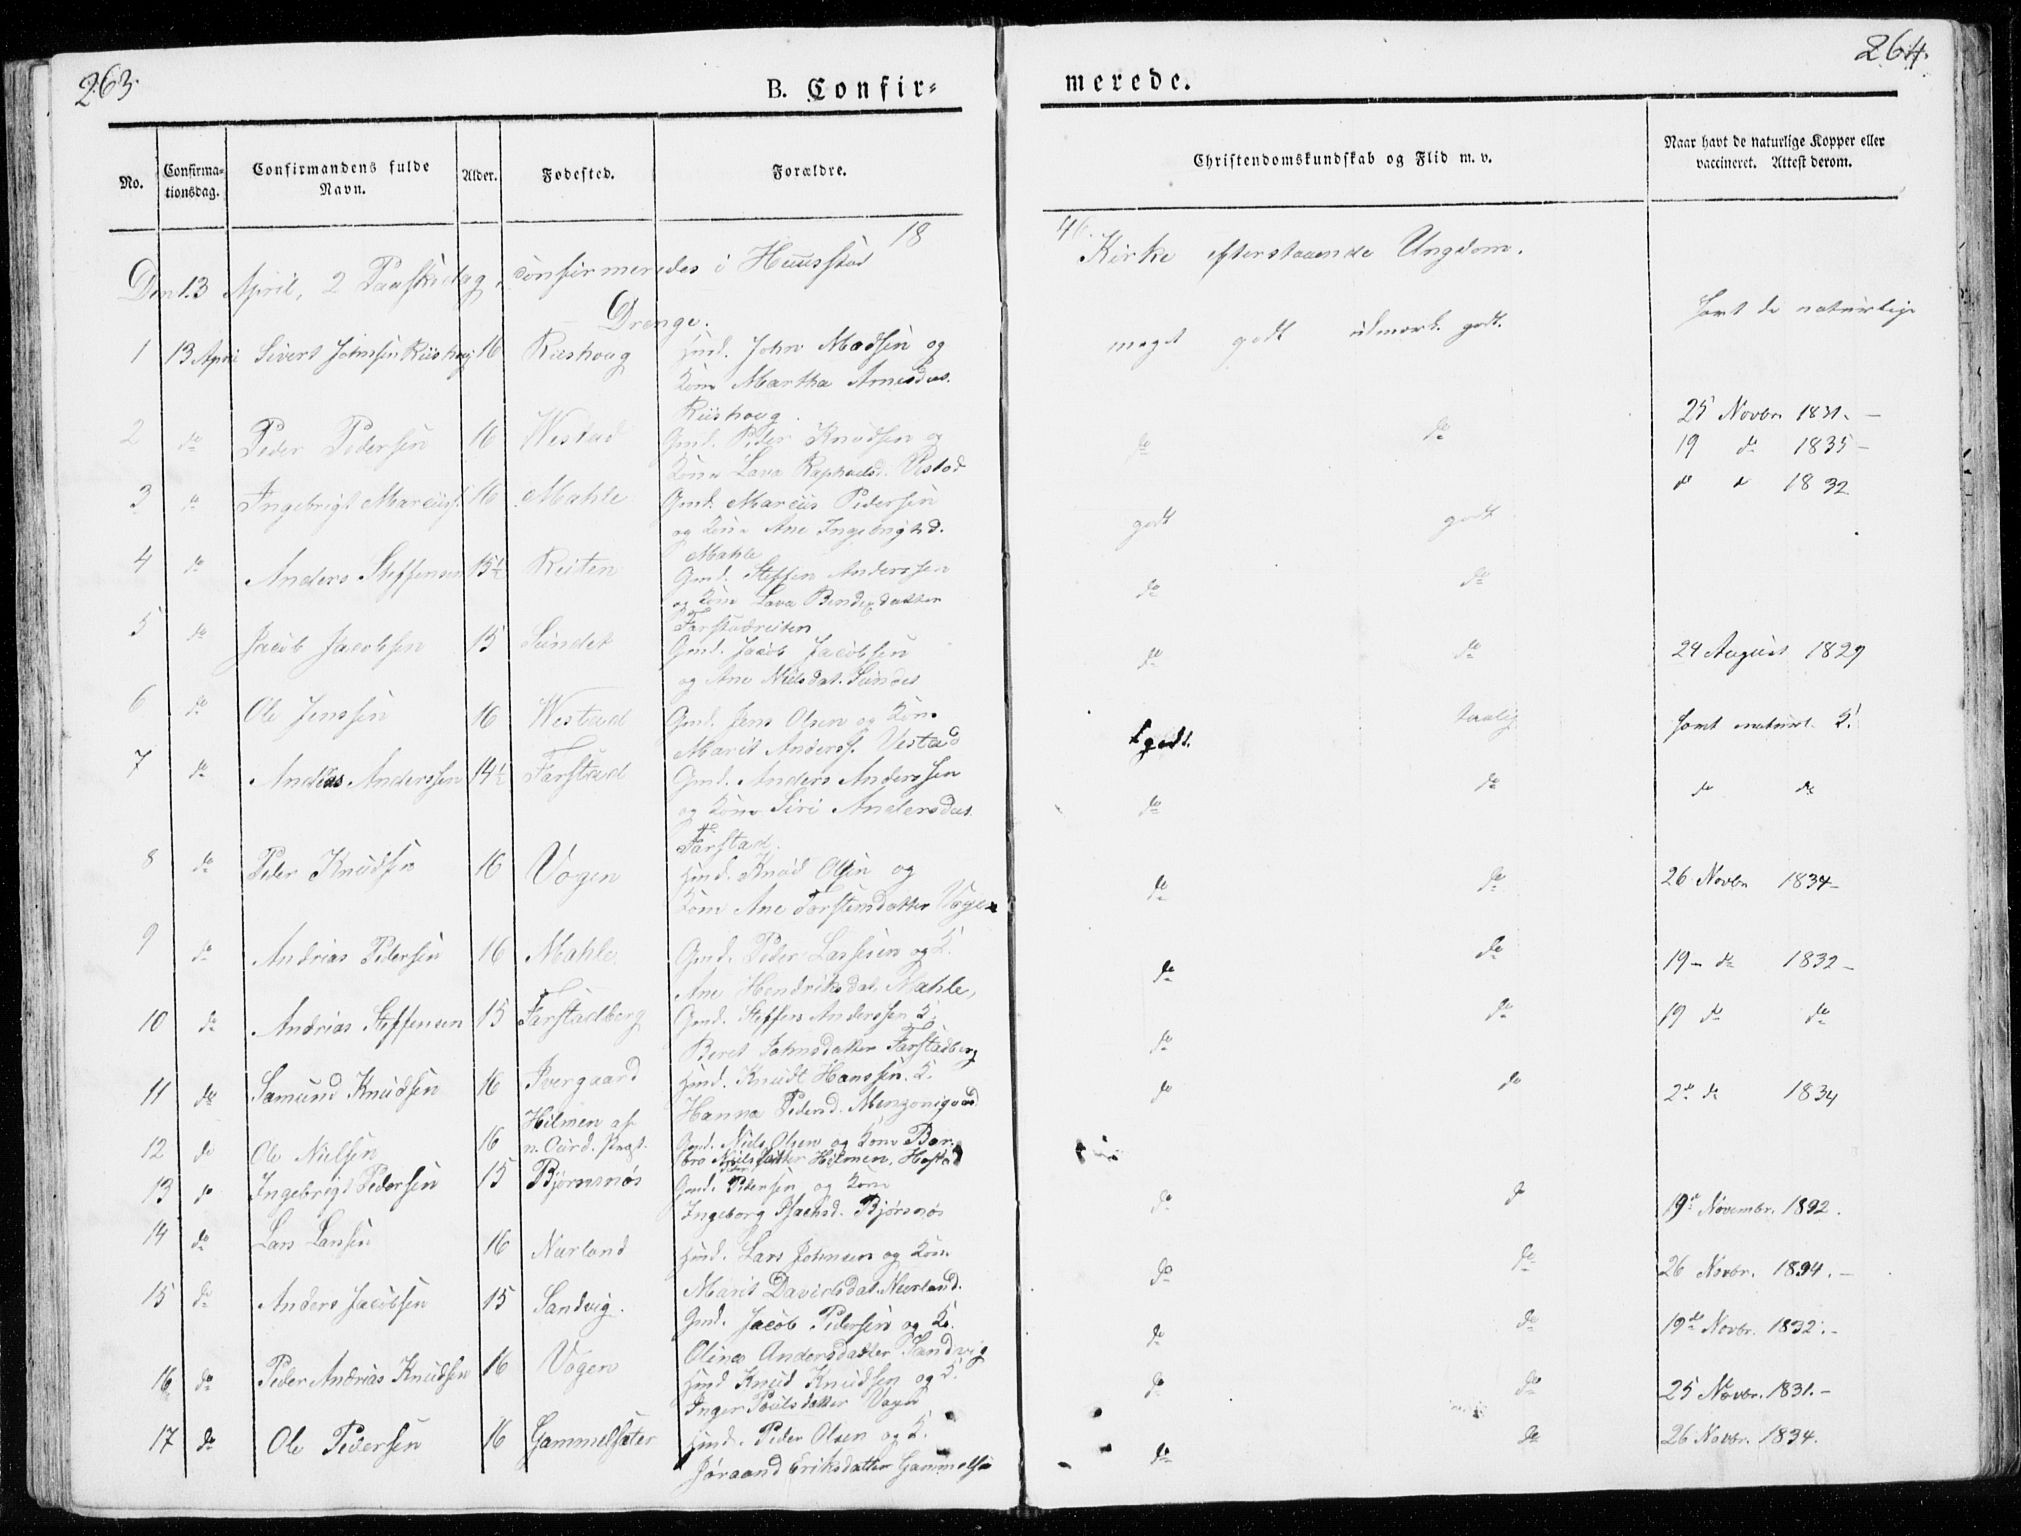 263.
264.
B. Confir-
merede.
No.
Confirma-
tionsdag.
Confirmandens fulde
Navn.
Alder.
Fødested.
Forældre.
Christendomskundskab og Flid m. v.
Naar havt de naturlige Kopper eller
vaccineret. Attest derom.
18
46.
Den 13 April, 2 Paaskedag, confirmeredes i Huusstad
Kirke efterstaaende Ungdom.
Drenge.
1 13 April Sivert Johnsen Riishoug 16 Riishoug Gmd. John Madsen og
Kone Martha Arnesdat.
Riishoug.
meget godt udmærk. godt. havt de naturlige
2 do Peder Pedersen 16 Westad Gmd. Peder Knudsen og
Kone Lava Raphaelsd. Vestad
do do 25 Novbr. 1831.
19 do 1835
3 do Ingebrigt Marcuss. 16 Mahle Gmd. Marcus Pedersen
og Kone Ane Ingebrigtsd.
Mahle
godt godt do do 1832
4 do Anders Steffensen 15½ Reiten Gmd. Steffen Anderssen
og Kone Lava Bendixdatter
Farstadreiten
do do
5 do Jacob Jacobsen 15 Sundet Gmd. Jacob Jacobsen
og Ane Nielsdat. Sundet
do do 24 August 1829
6 do Ole Jenssen 16 Westad Gmd. Jens Olsen og Kone
Marit Anderss. Vestad
godt. taalig havt naturl. K.
7 do Andreas Anderssen 14½ Farstad Gmd. Anders Anderssen
og Kone Siri Andersdat.
Farstad.
do do do do
8 do Peder Knudsen 16 Vogen Gmd. Knud Olsen og
Kone Ane Torstensdatter Vogen
do do 26 Novbr 1834
9 do Andreas Pedersen 16 Mahle Gmd. Peder Larssen og K.
Ane Hendriksdat. Mahle,
do do 19 do 1832
10 do Andreas Steffensen 15 Farstadberg Gmd. Steffen Anderssen K.
Beret Johnsdatter Farstadberg
do do 19 do do
11 do Samund Knudsen 16 Ivergaard Gmd. Knudt Hanssen. K.
Hanna Pedersd.
do do 2 do 1834
12 do Ole Nielsen 16 Hilmen af
n. Præst.
Gmd. Niels Olsen og Kone Bar-
bro Nielsdatter Hilmen,
13 do Ingebrigt Pedersen 15 Bjørnsnøs Gmd. Peder Pedersen og Kone
Ingeborg Isachsd. Bjørsnøs
do do 19de Novembr. 1832.
14 do Lars Larsen 16 Nerland Gmd. Lars Johnsen og Kone
Marit Davidsdat. Nerland.
do do 26 Novbr. 1834.
15 do Anders Jacobsen 15 Sandvig. Gmd. Jacob Pedersen og K.
Olina Andersdatter Sandvig
do do 19de Novbr. 1832.
16 do Peder Andreas Knudsen 16 Vogen Gmd Knud Knudsen og K.
Inger Poulsdatter Vogen
do do 25 Novbr. 1831.
17 do Ole Pedersen 16 Gammelsæter Gmd. Peder Olsen og K.
Jøraand Eriksdatter Gammelsæ
do do 26 Novbr. 1834.